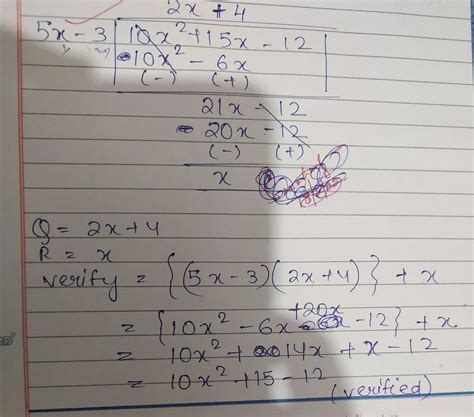 2x + 4
5x - 3 10x² + 15x - 12
- 10x² - 6x
(-) (+)
21x - 12
- 20x - 12
(-) (+)
x
Q = 2x + 4
R = x
verify = {(5x - 3)(2x + 4)} + x
+20x
= {10x² - 6x - 12} + x
= 10x² + 14x + x - 12
= 10x² + 15 - 12
(verified)